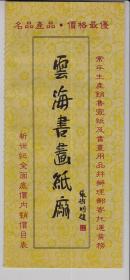 名品產品·價格最優
常年生產銷售宣紙及書畫用品并辦理郵寄托運業務
雲海書畫紙廠
新世紀全面底價內銷價目表